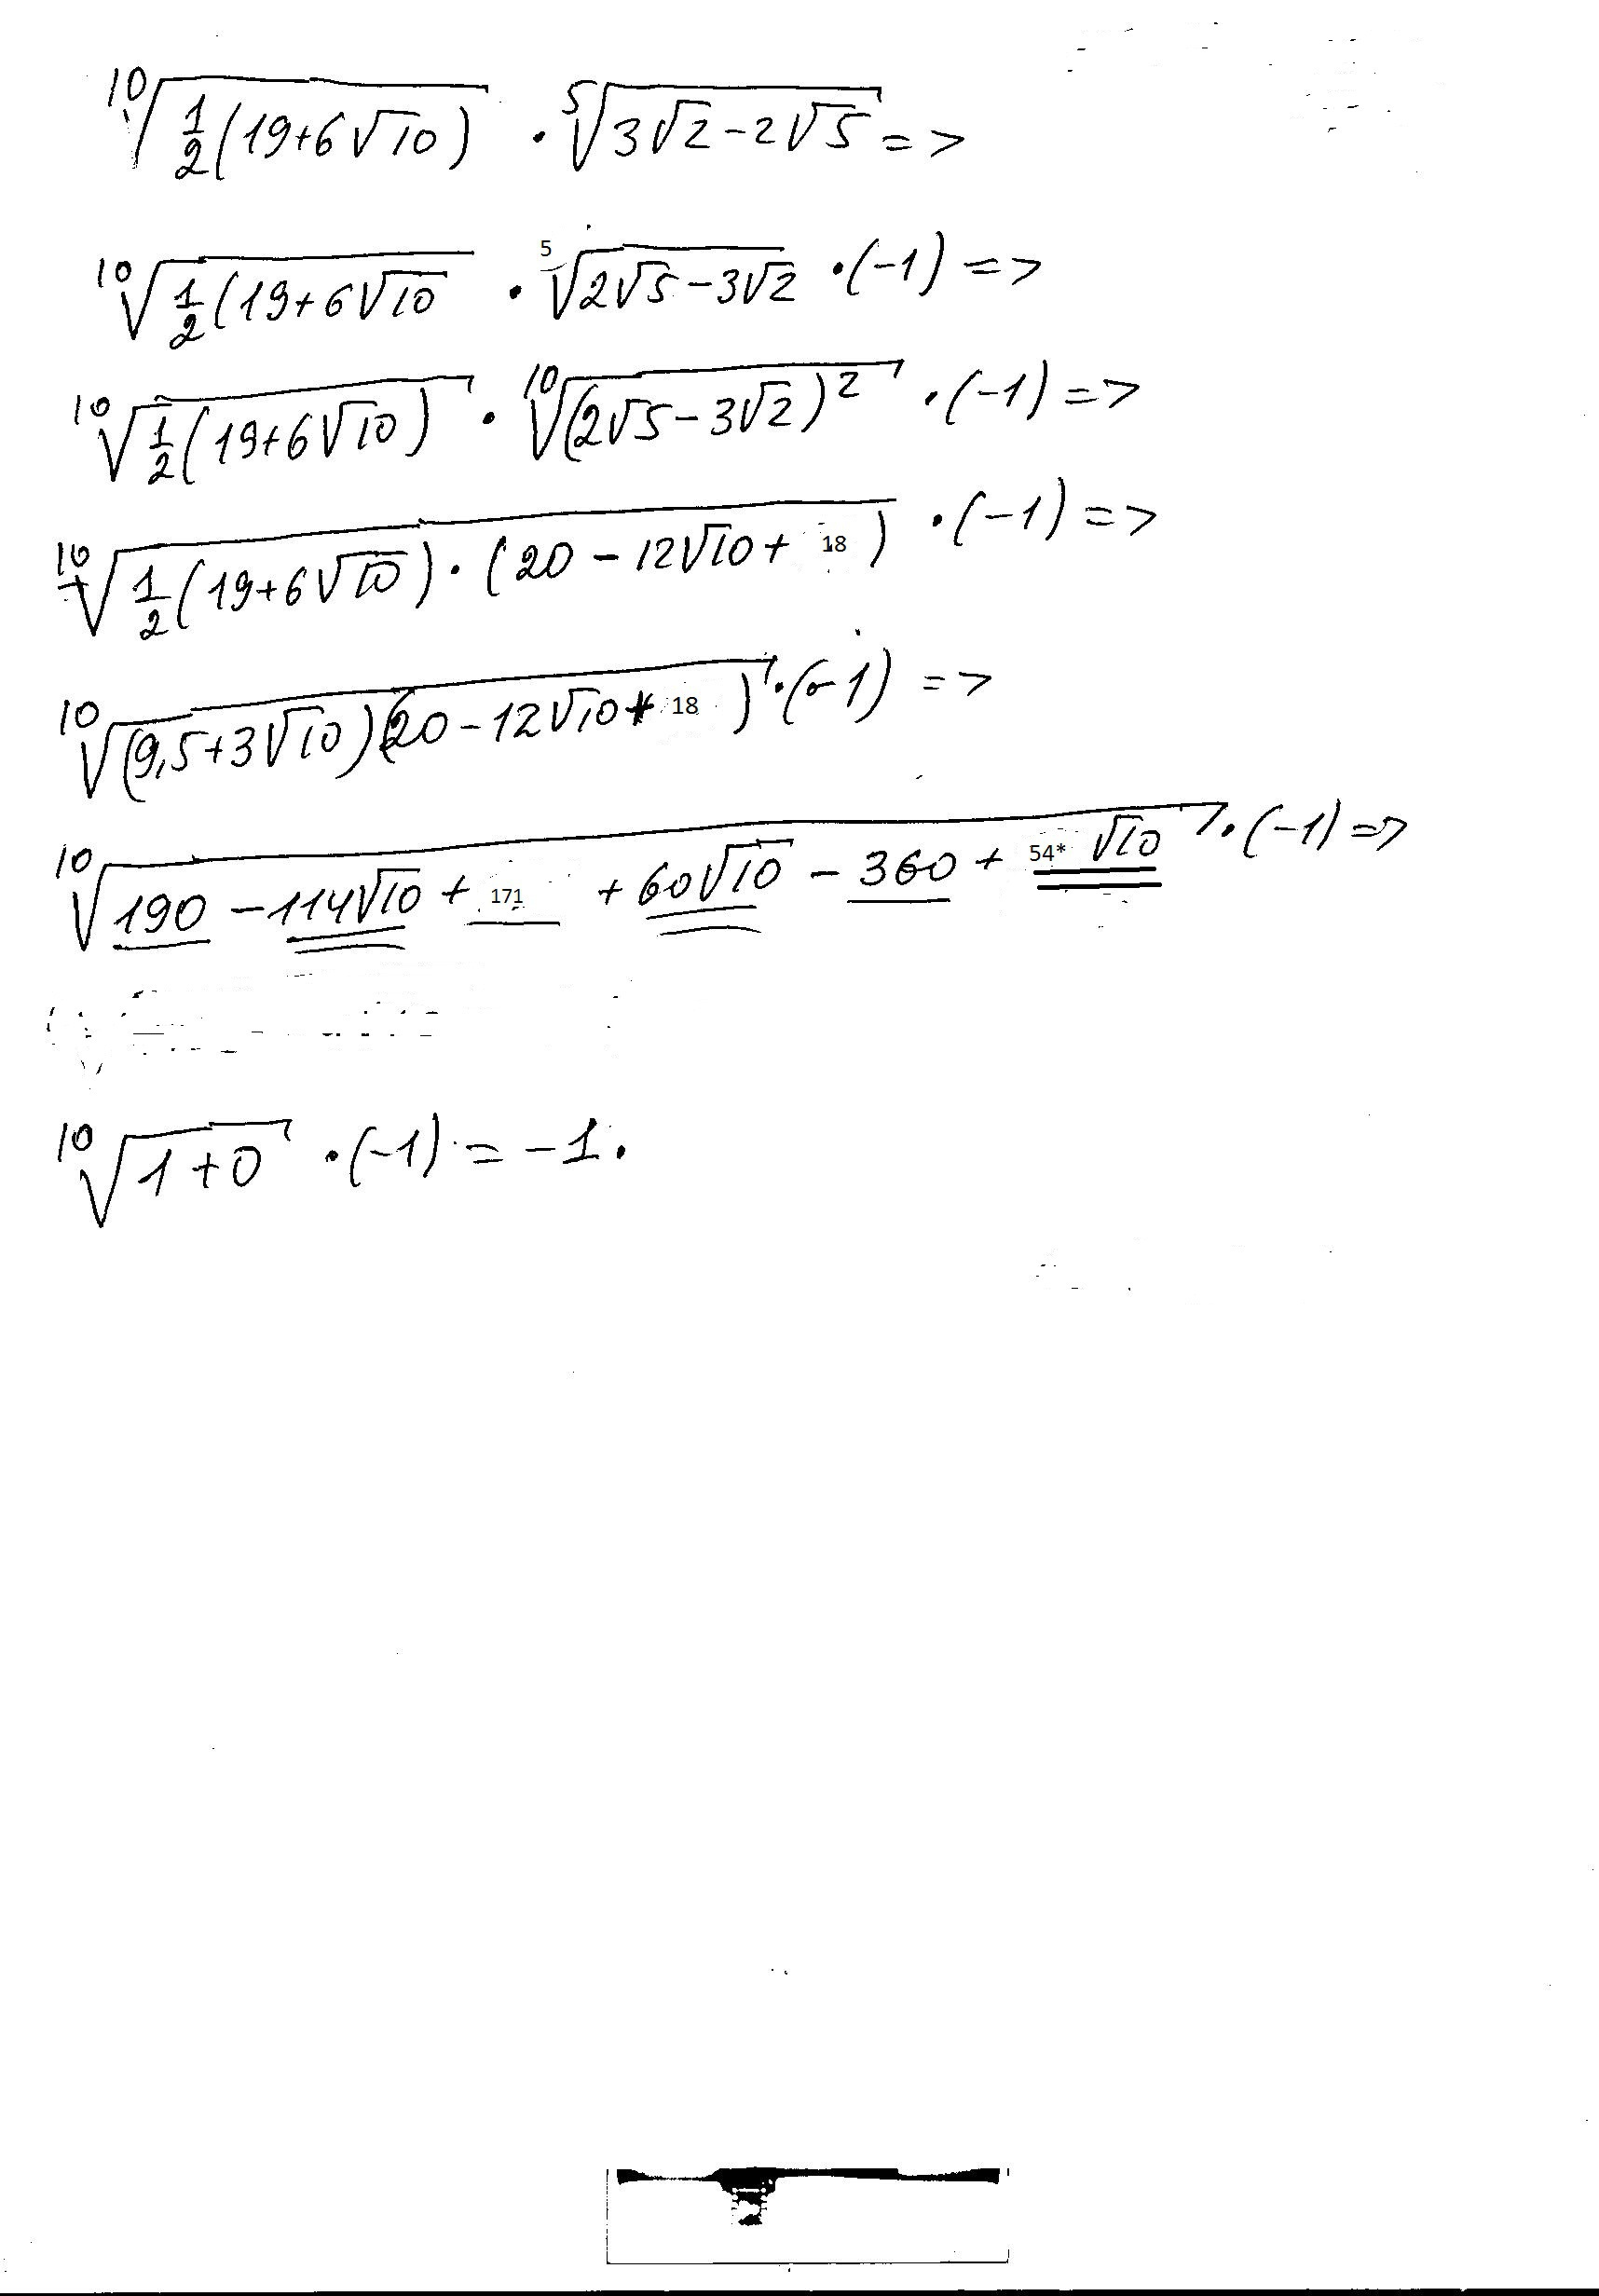 ¹⁰√(½(19+6√10)) · ⁵√(3√2-2√5) =>
¹⁰√(½(19+6√10 · ⁵√(2√5-3√2) · (-1) =>
¹⁰√(½(19+6√10)) · ¹⁰√((2√5-3√2)²) · (-1) =>
¹⁰√(½(19+6√10) · (20-12√10+18)) · (-1) =>
¹⁰√((9,5+3√10)(20-12√10+18)) · (-1) =>
¹⁰√(190-114√10+171+60√10-360+54*√10) · (-1) =>
¹⁰√(1+0) · (-1) = -1.